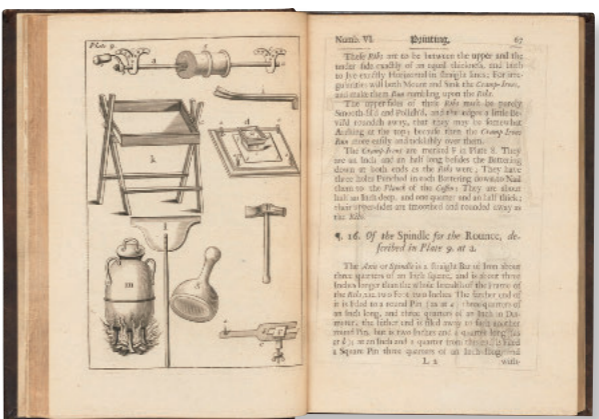 Plate 9.
a
k
l
m
Numb. VI. Printing. 67
These Ribs are to be between the upper and the
under side exactly of an equal thickness, and both
to lye exactly Horizontal in straight lines; For irre-
gularities will both mount and sink the Cramp-Irons,
and make them Run rumbling upon the Ribs.
The upper-sides of these Ribs must be purely
Smooth-fil'd and Pollish'd, and the edges a little Be-
vil'd roundish away, that they may be somewhat
Arching at the top; because then the Cramp-Irons
Run more easily and ticklishly over them.
The Cramp-Irons are marked F in Plate 8. They
are an Inch and an half long besides the Battering
down at both ends as the Ribs were; They have
three holes Punched in each Battering down, to Nail
them to the Planck of the Coffin: They are about
half an Inch deep, and one quarter and an half thick;
their upper-sides are smoothed and rounded away as
the Ribs.
¶. 16. Of the Spindle for the Rounce, de-
scribed in Plate 9. at a.
The Axis or Spindle is a straight Bar of Iron about
three quarters of an Inch Square, and is about three
Inches longer than the whole breadth of the Frame of
the Ribs, viz. two Foot two Inches: The farther end of
it is Filed to a round Pin (as at a) three quarters of
an Inch long, and three quarters of an Inch in Dia-
meter; the hither end is filed away to such another
round Pin, but is two Inches and a quarter long (as
at b); at an Inch and a quarter from this end is Filed
a Square Pin three quarters of an Inch long, and
L 2 with-